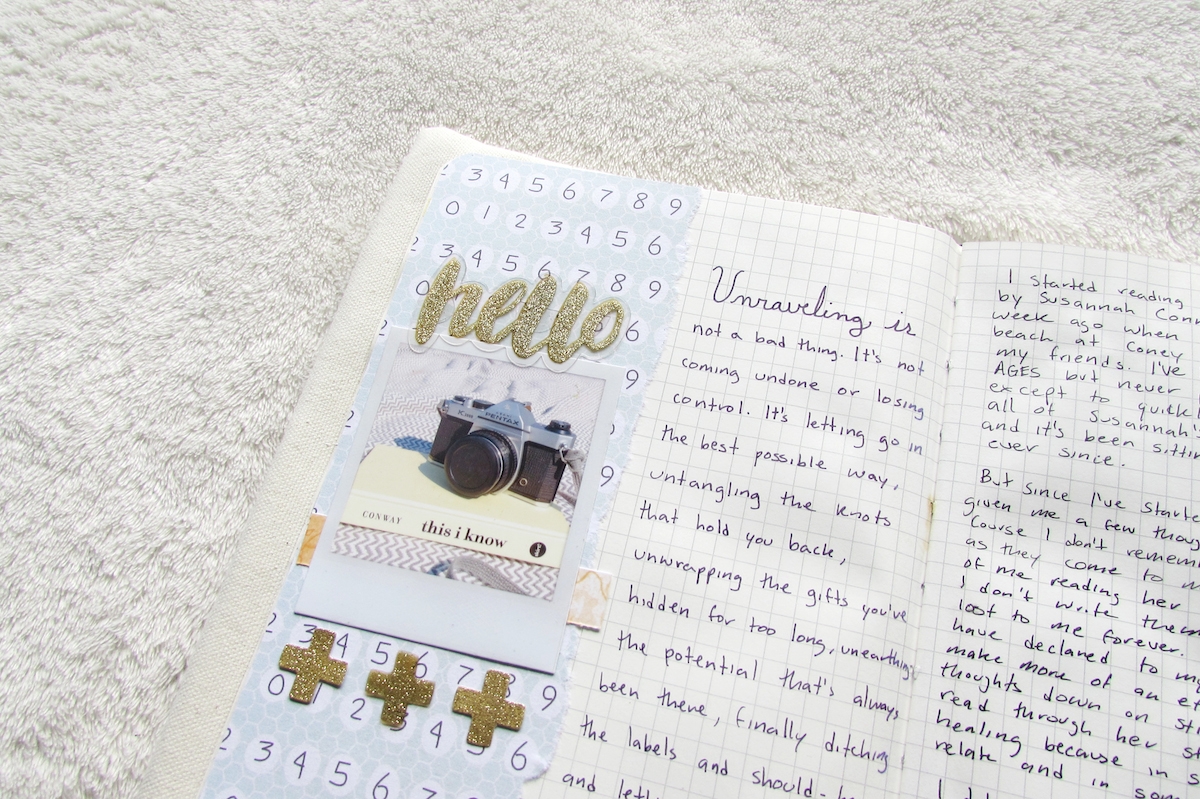 3 4 5 6 7 8 9
0 1 2 3 4 5 6
2 3 4 5 6 7 8 9
hello
6
9
2
9
PENTAX
CONWAY this i know
2 3 4 5 6 7 8 9
0 1 2 3 4 5 6
2 3 4 5 6 7 8 9
Unraveling is
not a bad thing. It's not
coming undone or losing
control. It's letting go in
the best possible way,
untangling the knots
that hold you back,
unwrapping the gifts you've
hidden for too long, unearthing
the potential that's always
been there, finally ditching
the labels and should-
and
I started reading
by Susannah
week ago when
beach at Coney
my friends. I've
AGES but never
except to
all of Susannah's
and it's been
ever since.
But since I've
given me a few
Course I don't
as they come to
of me reading her
I don't write them
lost to me forever.
have declared to
make more of an
thoughts down on
read through her
healing because in
relate and in